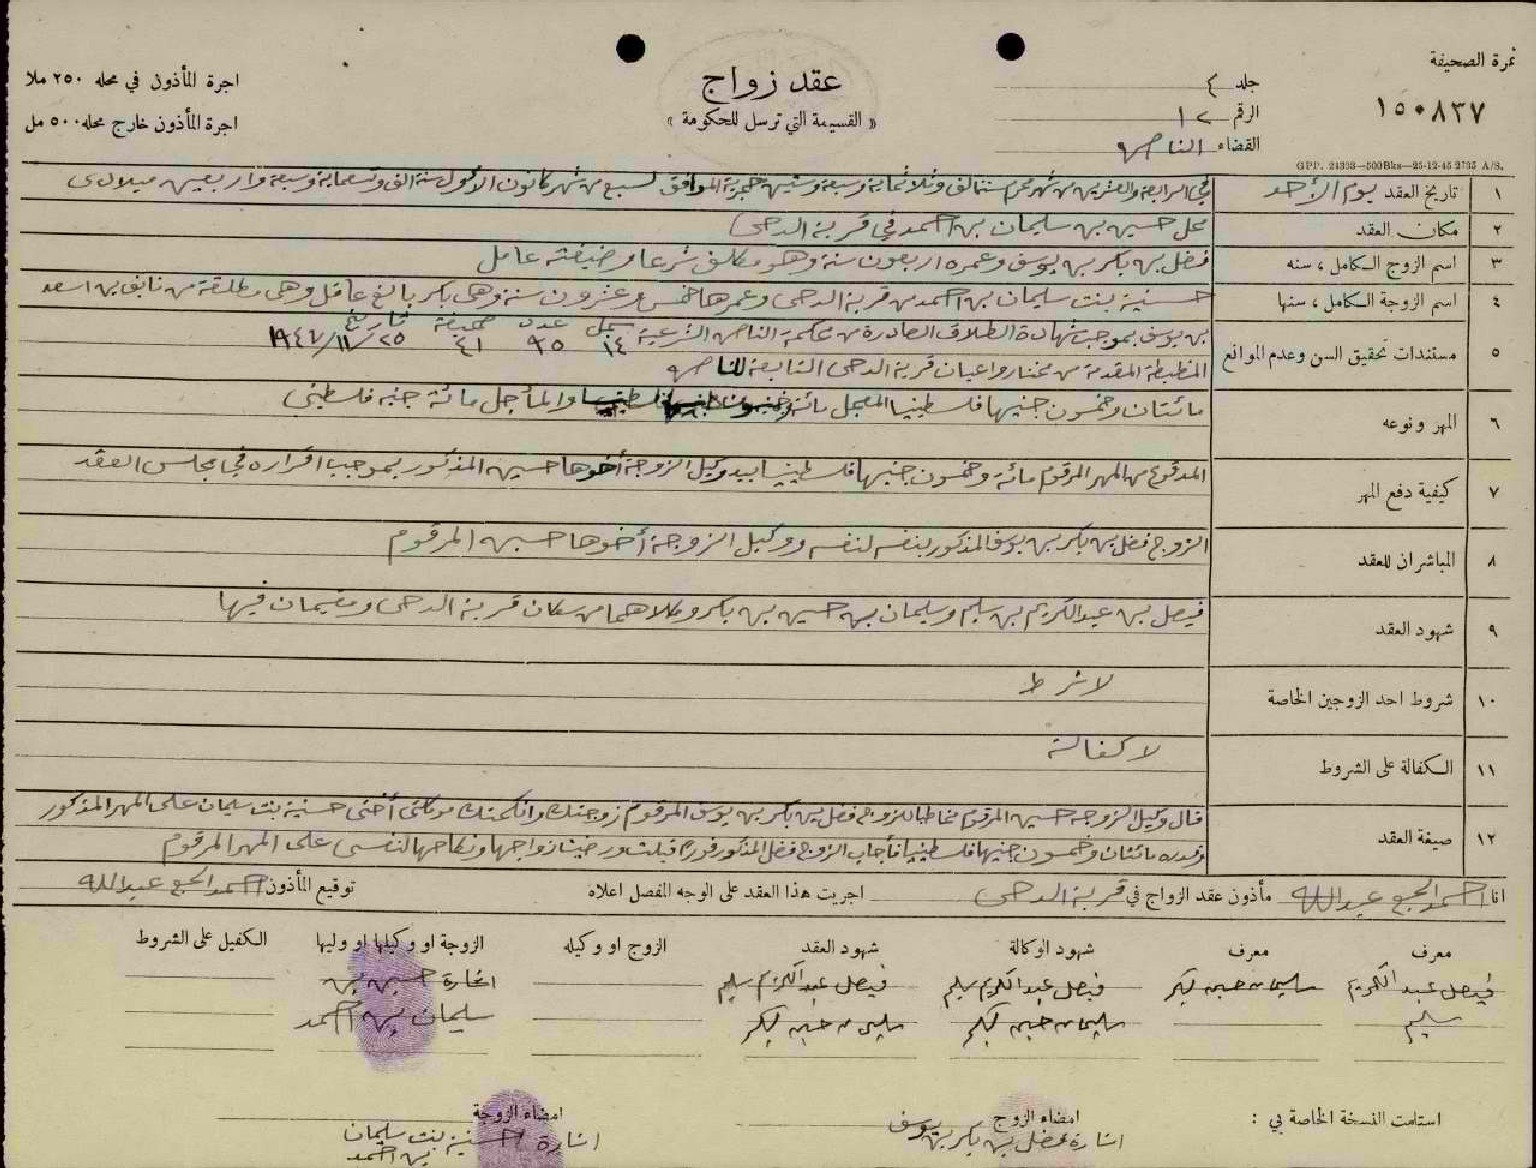 نمرة الصحيفة
١٥٠٨٣٧
جلد ٤
الرقم ١٢
القضاء الناصره
عقد زواج
« القسيمة التي ترسل للحكومة »
اجرة المأذون في محله ٢٥٠ ملا
اجرة المأذون خارج محله ٥٠٠ مل
GPP. 24333—500Bks—25-12-45 2735 A/S.
١ تاريخ العقد يوم الأحد في الرابعة والعشرين من شهر محرم سنة الف وثلاثماية وسبعة وستين هجرية الموافق لسبع من شهر كانون الأول سنة الف وتسعماية وسبعة واربعين ميلادى
٢ مكان العقد محل حسين بن سليمان بن احمد في قرية الدحى
٣ اسم الزوج الكامل ، سنه فضل بن بكر بن يوسف وعمره اربعون سنة وهو مكلف شرعا وضيفته عامل
٤ اسم الزوجة الكامل ، سنها حسنية بنت سليمان بن احمد من قرية الدحى وعمرها خمس وعشرون سنة وهى بكر بالغ عاقل وهى مطلقة من نايف بن اسعد
٥ مستندات تحقيق السن وعدم الموانع بن يوسف بموجب شهادة الطلاق الصادرة من محكمة الناصره الشرعية سجل ١٤ عدد ٩٥ صحيفة ٤١ تاريخ ٢٥/١١/١٩٤٧
المضبطة المقدمة من مختار واعيان قرية الدحى التابعة للناصره
٦ المهر ونوعه مائتان وخمسون جنيها فلسطينيا المعجل مائة وخمسون جنيها فلسطينيا والمأجل مائة جنيه فلسطينى
٧ كيفية دفع المهر المدفوع من المهر المرقوم مائة وخمسون جنيها فلسطينيا بيد وكيل الزوجة أخوها حسين المذكور بموجب اقراره في مجلس العقد
٨ المباشران للعقد الزوج فضل بن بكر بن يوسف المذكور بنفسه لنفسه ووكيل الزوجة أخوها حسين المرقوم
٩ شهود العقد فيصل بن عبدالكريم بن سليم وسليمان بن حسين بن بكر وكلاهما من سكان قرية الدحى ومقيمان فيها
١٠ شروط احد الزوجين الخاصة لا شرط
١١ الكفالة على الشروط لا كفالة
١٢ صيغة العقد قال وكيل الزوجة حسين المرقوم مخاطبا للزوج فضل بن بكر بن يوسف المرقوم زوجتك وانكحتك موكلتى أختى حسنية بنت سليمان على المهر المذكور
وقدره مائتان وخمسون جنيها فلسطينيا فأجاب الزوج فضل المذكور فورا قبلت ورضيت زواجها ونكاحها لنفسى على المهر المرقوم
انا احمد الحج عبدالله مأذون عقد الزواج في قرية الدحى اجريت هذا العقد على الوجه المفصل اعلاه توقيع المأذون احمد الحج عبدالله
معرف معرف شهود الوكالة شهود العقد الزوج او وكيله الزوجة او وكيلها او وليها الكفيل على الشروط
فيصل عبد الكريم سليمان حسين بكر فيصل عبد الكريم سليم فيصل عبد الكريم سليم اشارة حسين بن
سليم سليمان حسين بكر سليمان حسين بكر سليمان بن احمد
استلمت النسخة الخاصة بي : امضاء الزوج امضاء الزوجة
اشارة فضل بن بكر بن يوسف اشارة حسنية بنت سليمان
بن احمد